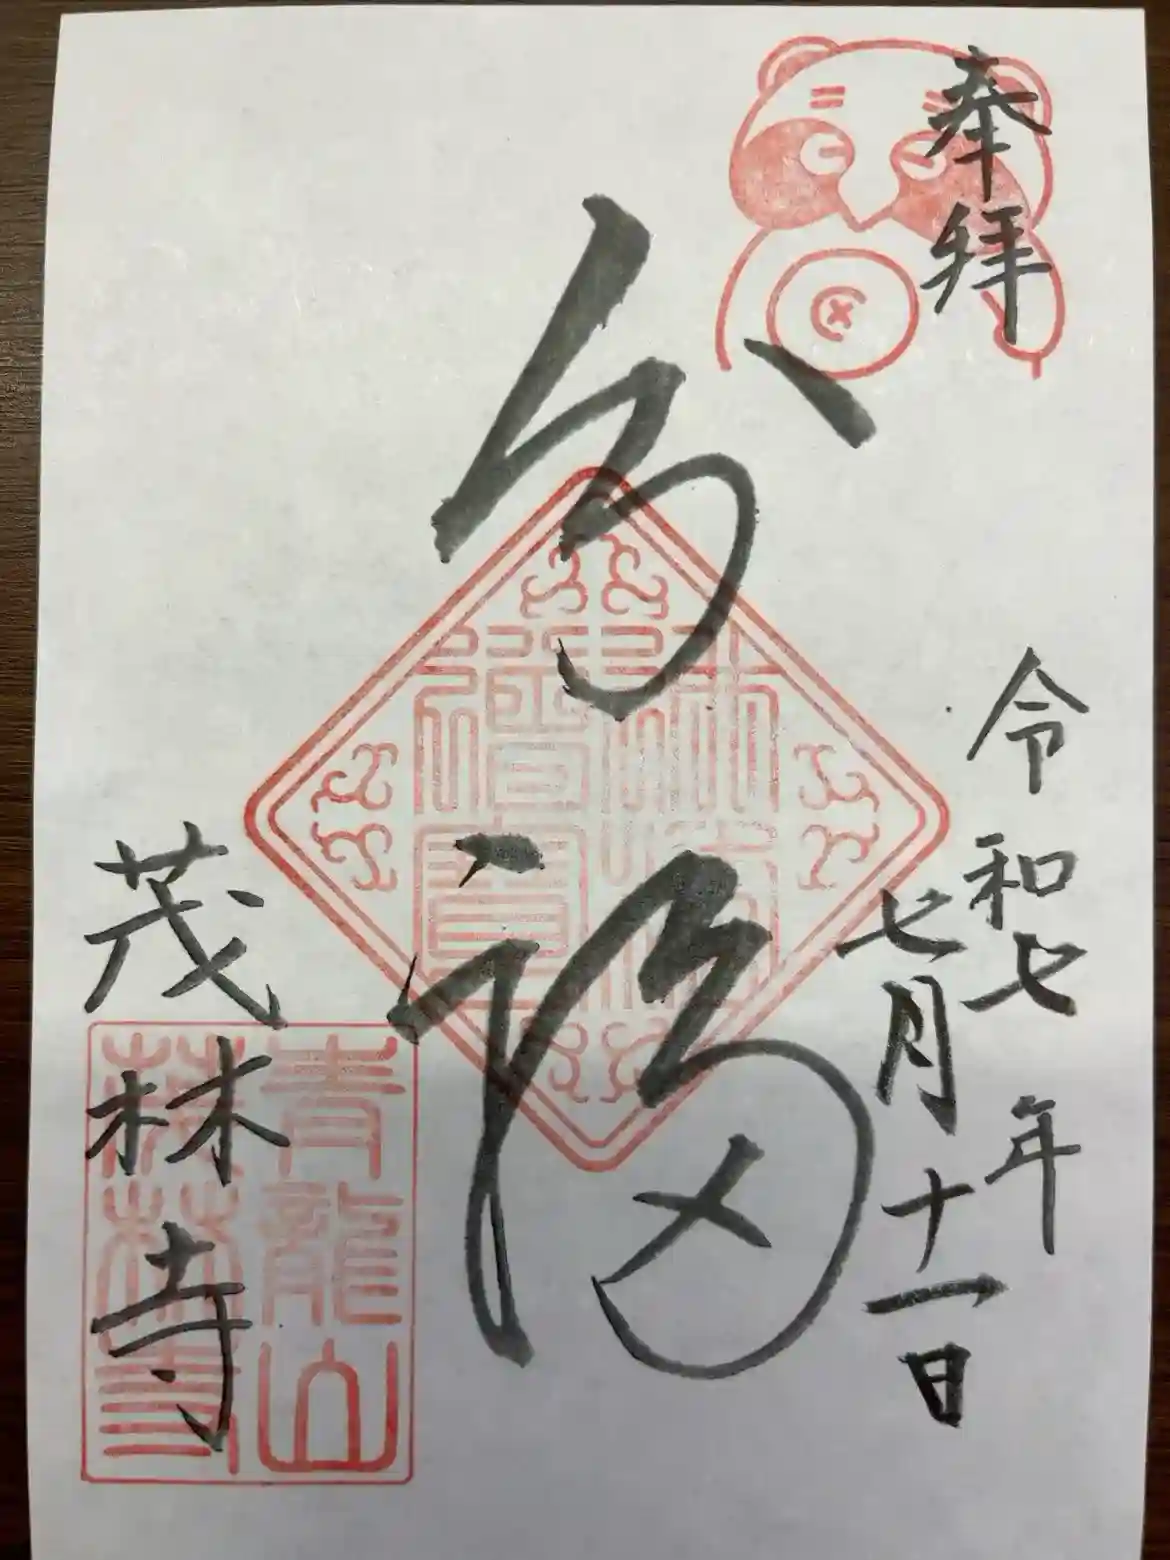 奉拝
令和七年
七月十一日
分福
茂林寺
青龍山
茂林寺